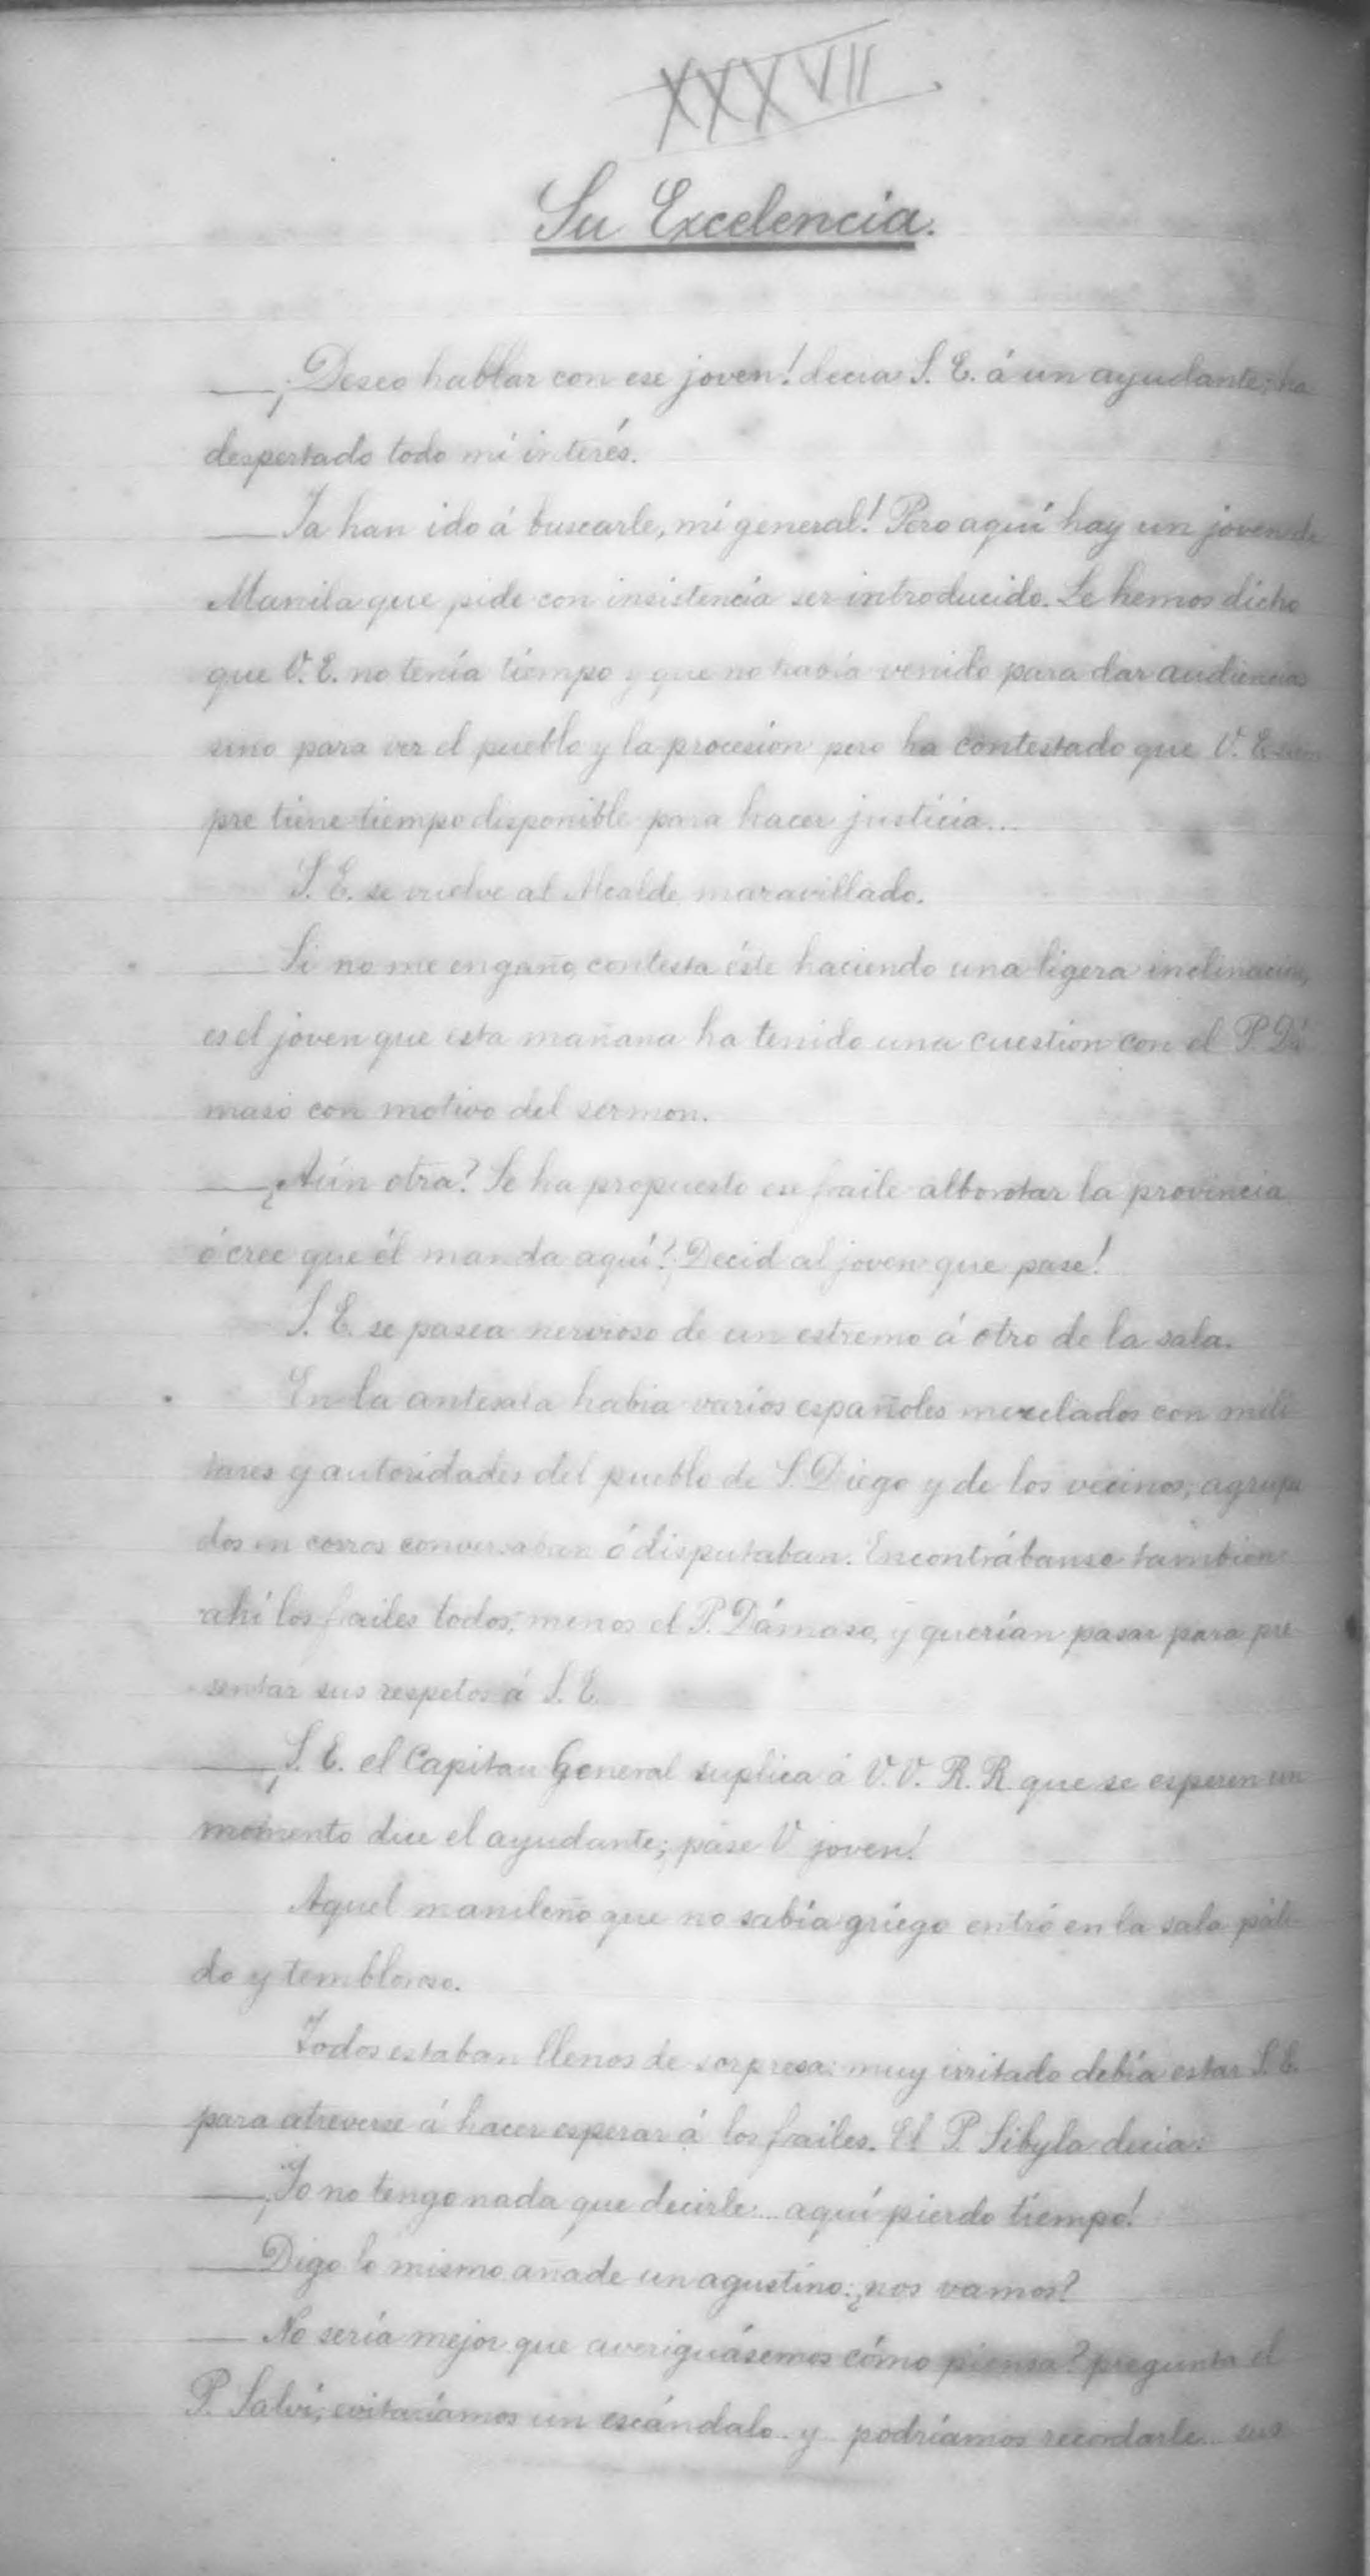 XXXVII
Su Excelencia.
—¡Deseo hablar con ese joven! decia S. E. á un ayudante; ha
despertado todo mi interés.
—Ya han ido á buscarle, mi general! Pero aquí hay un joven de
Manila que pide con insistencia ser introducido. Le hemos dicho
que V. E. no tenía tiempo y que no había venido para dar audiencias
sino para ver el pueblo y la procesion pero ha contestado que V. E. siem
pre tiene tiempo disponible para hacer justicia...
S. E. se vuelve al Alcalde maravillado.
—Si no me engaño, contesta éste haciendo una ligera inclinacion,
es el joven que esta mañana ha tenido una cuestion con el P. Dá
maso con motivo del sermon.
—¿Aún otra? Se ha propuesto ese fraile alborotar la provincia
ó cree que él manda aquí? ¡Decid al joven que pase!
S. E. se pasea nervioso de un estremo á otro de la sala.
En la antesala habia varios españoles mezclados con mili
tares y autoridades del pueblo de S. Diego y de los vecinos; agrupa
dos en corros conversaban ó disputaban. Encontrábanse tambien
ahí los frailes todos, menos el P. Dámaso, y querían pasar para pre
sentar sus respetos á S. E.
—¡S. E. el Capitan General suplica á V. V. R. R. que se esperen un
momento dice el ayudante; pase V joven!
Aquel manileño que no sabía griego entró en la sala páli
do y tembloroso.
Todos estaban llenos de sorpresa: muy irritado debía estar S. E.
para atreverse á hacer esperar á los frailes. El P. Sibyla decia:
—¡Yo no tengo nada que decirle... aquí pierdo tiempo!
—Digo lo mismo añade un agustino: ¿nos vamos?
—No sería mejor que averiguásemos cómo piensa? pregunta el
P. Salví; evitaríamos un escándalo.. y.. podríamos recordarle... sus